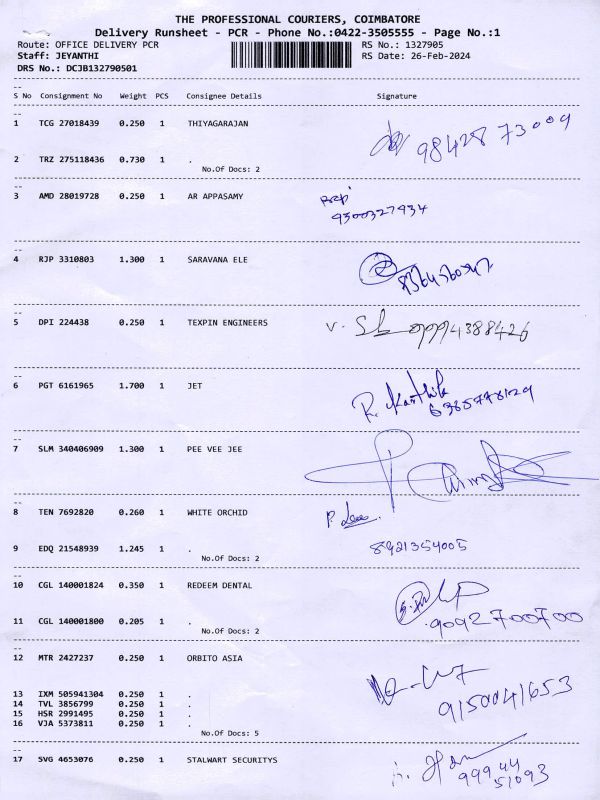 THE PROFESSIONAL COURIERS, COIMBATORE
Delivery Runsheet - PCR - Phone No.:0422-3505555 - Page No.:1
Route: OFFICE DELIVERY PCR RS No.: 1327905
Staff: JEYANTHI RS Date: 26-Feb-2024
DRS No.: DCJB132790501
S No Consignment No Weight PCS Consignee Details Signature
1 TCG 27018439 0.250 1 THIYAGARAJAN
98428 73009
2 TRZ 275118436 0.730 1 .
No.Of Docs: 2
3 AMD 28019728 0.250 1 AR APPASAMY
9500327934
4 RJP 3310803 1.300 1 SARAVANA ELE
5 DPI 224438 0.250 1 TEXPIN ENGINEERS
9994388426
6 PGT 6161965 1.700 1 JET
R. Karthik
7 SLM 340406909 1.300 1 PEE VEE JEE
8 TEN 7692820 0.260 1 WHITE ORCHID
9 EDQ 21548939 1.245 1 . 8921354005
No.Of Docs: 2
10 CGL 140001824 0.350 1 REDEEM DENTAL
11 CGL 140001800 0.205 1 . 9092700700
No.Of Docs: 2
12 MTR 2427237 0.250 1 ORBITO ASIA
13 IXM 505941304 0.250 1 . 9150041653
14 TVL 3856799 0.250 1 .
15 HSR 2991495 0.250 1 .
16 VJA 5373811 0.250 1 .
No.Of Docs: 5
17 SVG 4653076 0.250 1 STALWART SECURITYS
99944
51093